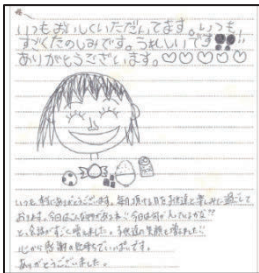 いつもおいしくいただいてます。いつも
すごくたのしみです。うれしいです!!
ありがとうございます。♡♡♡♡♡
いつも本当にありがとうございます。毎月頂ける日を子供達と楽しみに過ごして
おります。今日は
と、会話がすごく増えました。子供達の笑顔も増ました♡
心から感謝の気持ちでいっぱいです。
ありがとうございました。